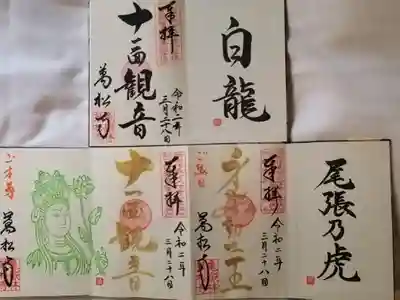 白龍
奉拝
令和二年
三月二十八日
十一面観音
萬松寺
尾張乃虎
奉拝
令和二年
三月二十八日
萬松寺
奉拝
令和二年
三月二十八日
十一面観音
萬松寺